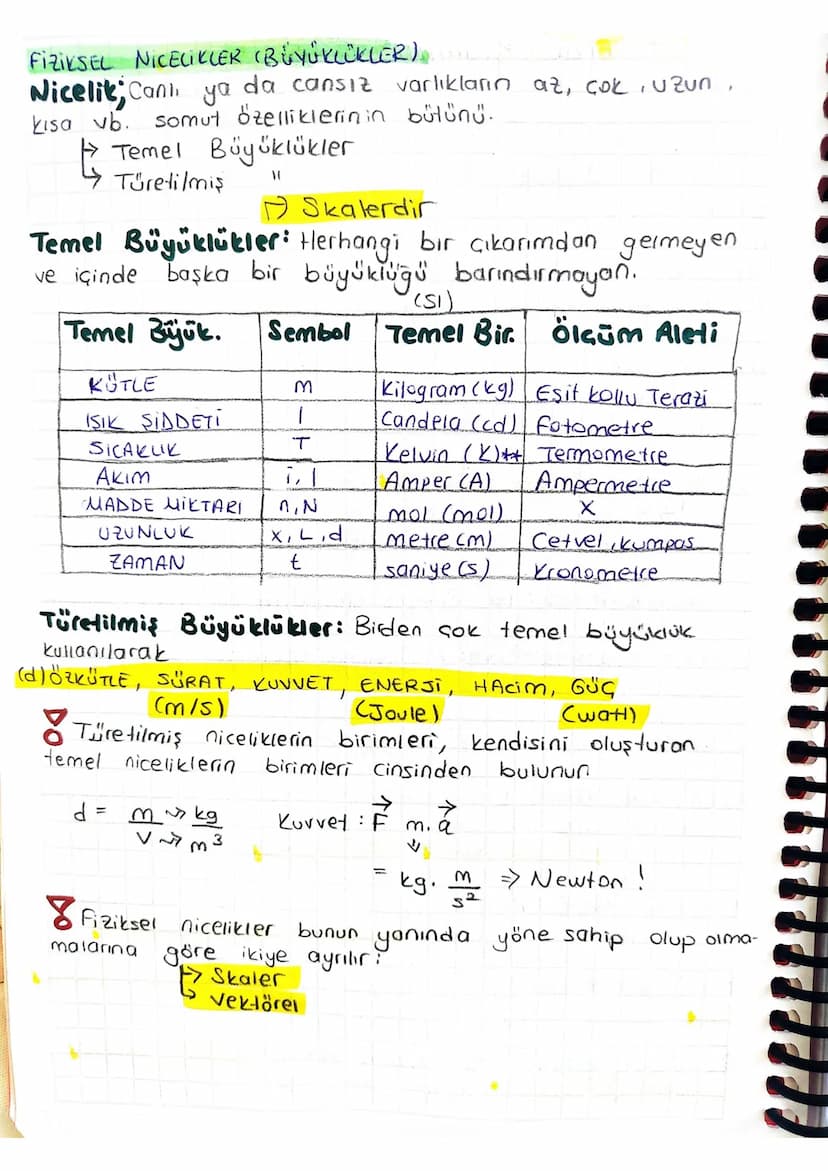 FİZİKSEL NİCELİKLER (BÜYÜKLÜKLER)
Nicelik; Canlı ya da cansız varlıkların az, çok, uzun,
kısa vb. somut özelliklerinin bütünü.
↳ Temel Büyüklükler
↳ Türetilmiş "
→ Skalerdir
Temel Büyüklükler: Herhangi bir çıkarımdan gelmeyen
ve içinde başka bir büyüklüğü barındırmayan.
(SI)
Temel Büyük. Sembol Temel Bir. Ölçüm Aleti
KÜTLE m Kilogram (kg) Eşit kollu Terazi
IŞIK ŞİDDETİ I Candela (cd) Fotometre
SICAKLIK T Kelvin (K)** Termometre
AKIM i, I Amper (A) Ampermetre
MADDE MİKTARI n, N mol (mol) X
UZUNLUK x, L, d metre (m) Cetvel, kumpas
ZAMAN t saniye (s) Kronometre
Türetilmiş Büyüklükler: Birden çok temel büyüklük
kullanılarak
(d) ÖZKÜTLE, SÜRAT, KUVVET, ENERJİ, HACİM, GÜÇ
(m/s) (Joule) (watt)
Türetilmiş niceliklerin birimleri, kendisini oluşturan
temel niceliklerin birimleri cinsinden bulunur
d = m → kg / V → m³ Kuvvet : F m. a
= kg. m/s² ⇒ Newton !
Fiziksel nicelikler bunun yanında yöne sahip olup olma-
malarına göre ikiye ayrılır:
↳ Skaler
↳ Vektörel